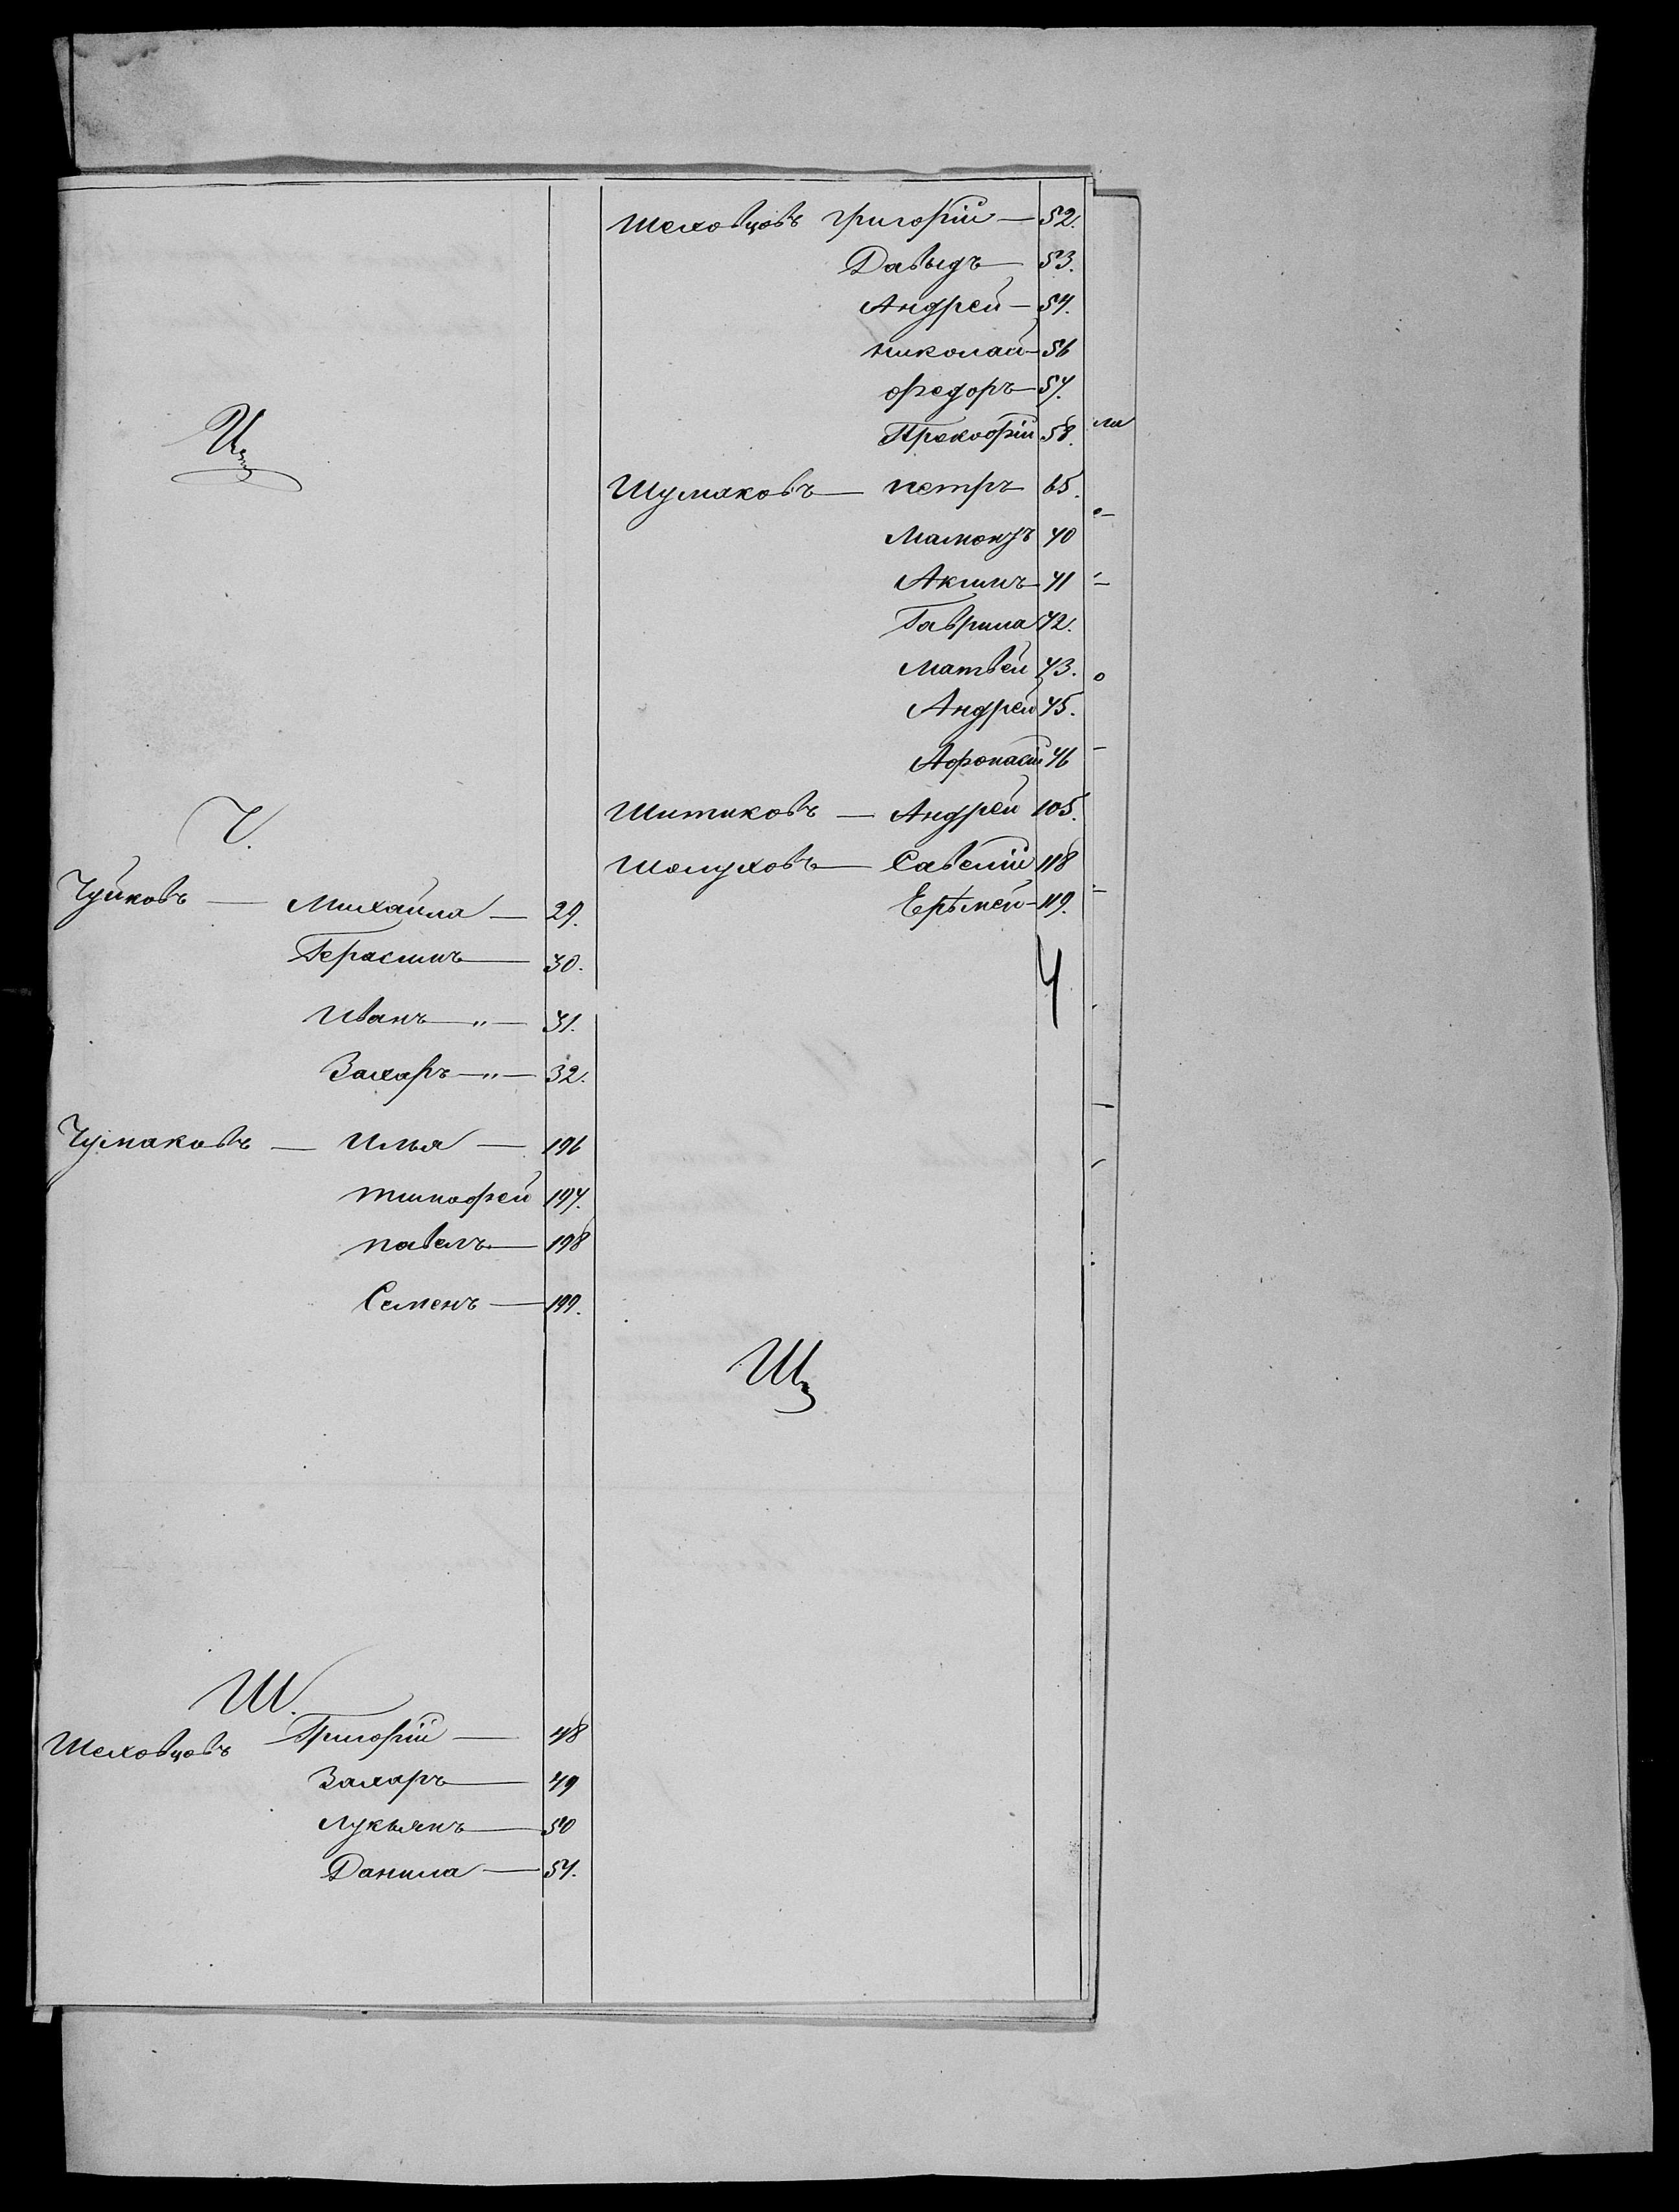 Ц
Ч.
Чуйковъ — Михайла — 29.
Герасимъ — 30.
Иванъ — " — 31.
Захаръ — " — 32.
Чумаковъ — Илья — 196
тимофей 197.
павелъ — 198
Семенъ — 199.
Ш.
Шеховцовъ Григорій — 48
Захаръ — 49
Лукьянъ — 50
Данила — 51.
Шеховцовъ григорій — 52.
Давыдъ — 53.
Андрей — 54.
николай — 56
федоръ — 57.
Прокофій 58.
Шумаковъ — петръ 65.
Мамонтъ 70
Акимъ 71
Гаврила 72.
Матвей 73.
Андрей 75.
Афонасій 76
Шитиковъ — Андрей 105.
Шолуховъ — Савелій 118
Ерѣмей — 119.
Щ